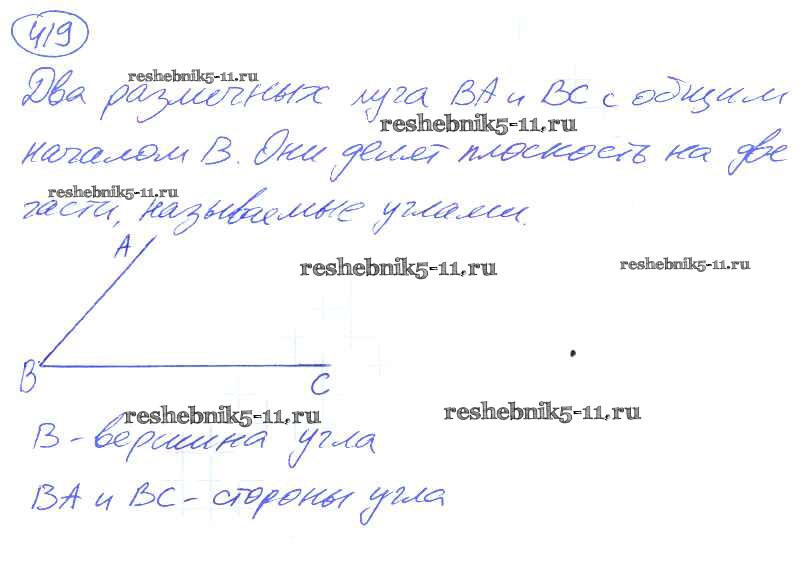 419
reshebnik5-11.ru
Два различных луча BA и BC с общим
reshebnik5-11.ru
началом B. Они делят плоскость на две
reshebnik5-11.ru
части, называемые углами.
A
reshebnik5-11.ru
reshebnik5-11.ru
B
C
reshebnik5-11.ru
reshebnik5-11.ru
B - вершина угла
BA и BC - стороны угла